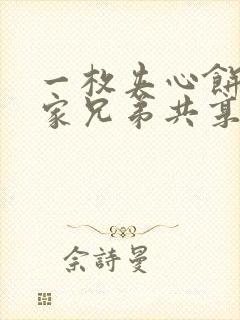 一枚夹心餅
家兄弟共享
佘詩曼